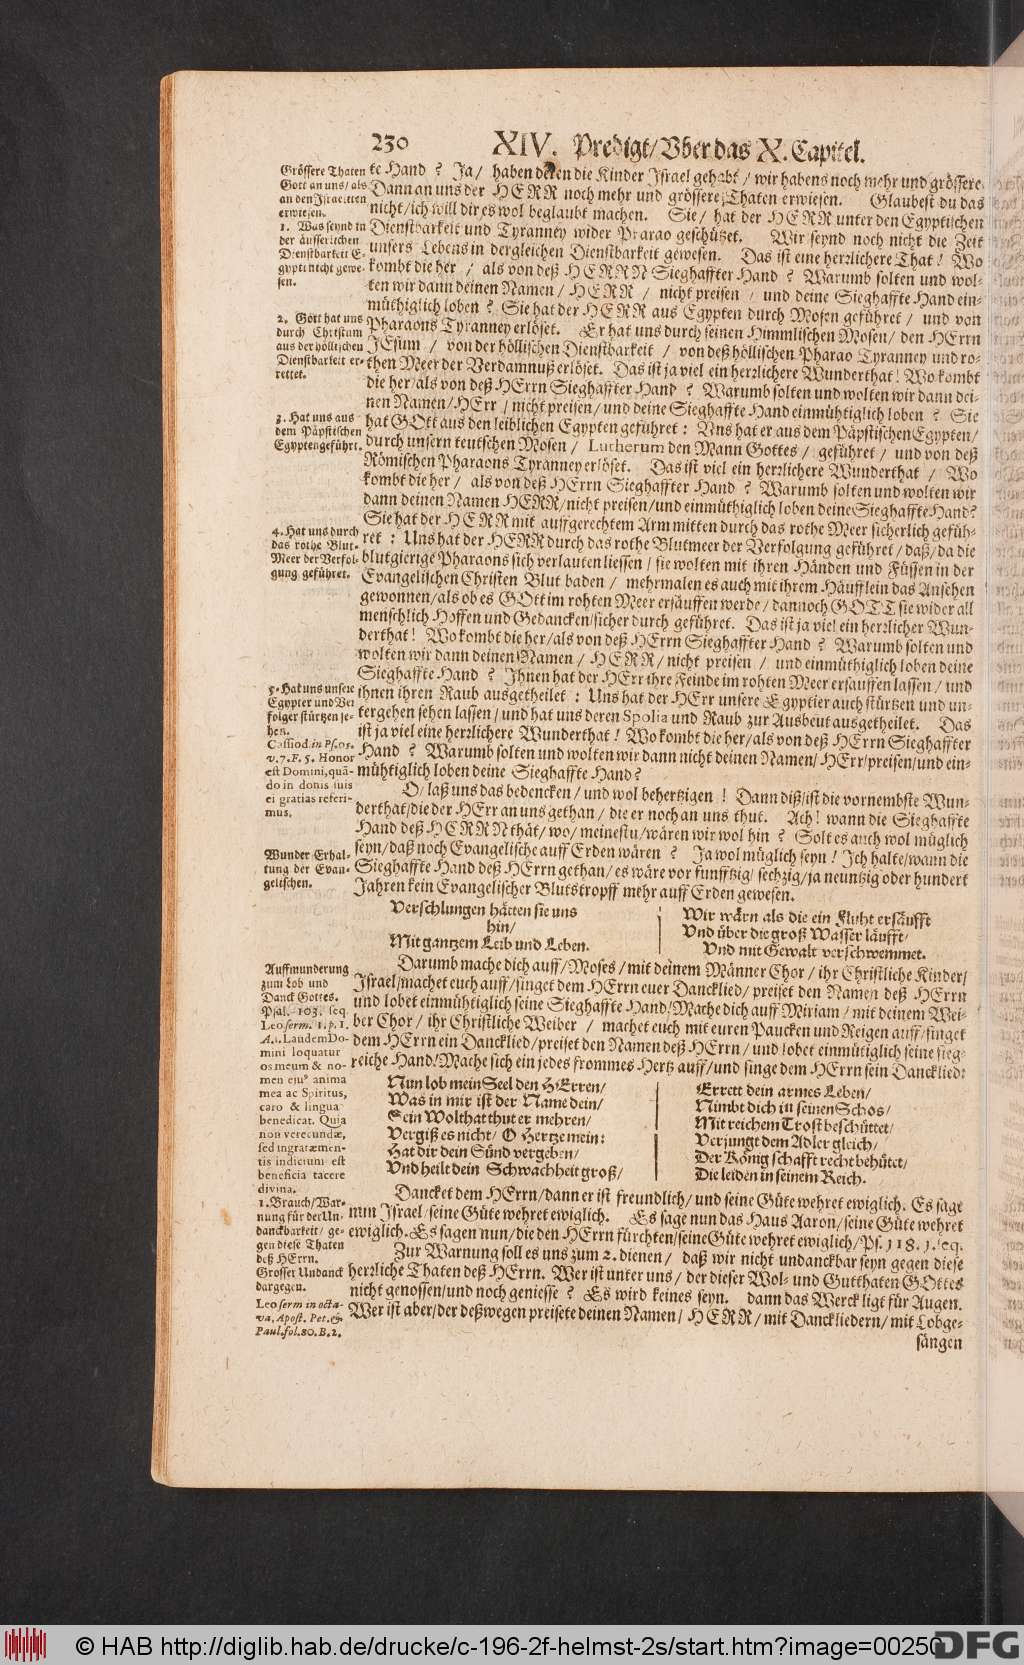 230 XIV. Predigt/ Vber das X. Capitel.
te Hand? Ja/ haben deren die Kinder Israel gehabt/ wir habens noch mehr und grössere.
Dann an uns der HERR noch mehr und grössere Thaten erwiesen. Glaubest du das
nicht/ ich will dir es wol beglaubt machen. Sie/ hat der HERR unter den Egyptischen
Dienstbarkeit und Tyranney wider Pharao geschützet. Wir seynd noch nicht die Zeit
unsers Lebens in dergleichen Dienstbarkeit gewesen. Das ist eine herrlichere That! Wo
kombt die her/ als von deß HERRN Sieghaffter Hand? Warumb solten und wol-
ten wir dann deinen Namen/ HERR/ nicht preisen/ und deine Sieghaffte Hand ein-
müthiglich loben? Sie hat der HERR aus Egypten durch Mosen geführet/ und von
Pharaons Tyranney erlöset. Er hat uns durch seinen Himmlischen Mosen/ den HErrn
JEsum/ von der höllischen Dienstbarkeit/ von deß höllischen Pharao Tyranney und ro-
then Meer der Verdamnuß erlöset. Das ist ja viel ein herrlichere Wunderthat! Wo kombt
die her/ als von deß HErrn Sieghaffter Hand? Warumb solten und wolten wir dann dei-
nen Namen/ HErr/ nicht preisen/ und deine Sieghaffte Hand einmüthiglich loben? Sie
hat GOtt aus den leiblichen Egypten geführet: Uns hat er aus dem Päpstischen Egypten/
durch unsern teutschen Mosen/ Lutherum den Mann Gottes/ geführet/ und von deß
Römischen Pharaons Tyranney erlöset. Das ist viel ein herrlichere Wunderthat/ Wo
kombt die her/ als von deß HErrn Sieghaffter Hand? Warumb solten und wolten wir
dann deinen Namen HERR/ nicht preisen/ und einmüthiglich loben deine Sieghaffte Hand?
Sie hat der HERR mit auffgerechtem Arm mitten durch das rothe Meer sicherlich gefüh-
ret: Uns hat der HERR durch das rothe Blutmeer der Verfolgung geführet/ daß/ da die
blutgierige Pharaons sich verlauten liessen/ sie wolten mit ihren Händen und Füssen in der
Evangelischen Christen Blut baden/ mehrmalen es auch mit ihrem Häufflein das Ansehen
gewonnen/ als ob es GOtt im rohten Meer ersäuffen werde/ dannoch GOTT sie wider all
menschlich Hoffen und Gedancken/ sicher durch geführet. Das ist ja viel ein herrlicher Wun-
derthat! Wo kombt die her/ als von deß HErrn Sieghaffter Hand? Warumb solten und
wolten wir dann deinen Namen/ HERR/ nicht preisen/ und einmüthiglich loben deine
Sieghaffte Hand? Ihnen hat der HErr ihre Feinde im rohten Meer ersauffen lassen/ und
ihnen ihren Raub ausgetheilet: Uns hat der HErr unsere Egyptier auch stürtzen und un-
tergehen sehen lassen/ und hat uns deren Spolia und Raub zur Ausbeut ausgetheilet. Das
ist ja viel eine herrlichere Wunderthat! Wo kombt die her/ als von deß HErrn Sieghaffter
Hand? Warumb solten und wolten wir dann nicht deinen Namen/ HErr/ preisen/ und ein-
mühtiglich loben deine Sieghaffte Hand?
O/ laß uns das bedencken/ und wol behertzigen! Dann diß/ ist die vornembste Wun-
derthat/ die der HErr an uns gethan/ die er noch an uns thut. Ach! wann die Sieghaffte
Hand deß HERRN thät/ wo/ meinestu/ wären wir wol hin? Solt es auch wol müglich
seyn/ daß noch Evangelische auff Erden wären? Ja wol müglich seyn! Ich halte/ wann die
Sieghaffte Hand deß HErrn gethan/ es wäre vor funfftzig/ sechzig/ ja neuntzig oder hundert
Jahren kein Evangelischer Blutstropff mehr auff Erden gewesen.
Verschlungen hätten sie uns
hin/
Mit gantzem Leib und Leben.
Wir wärn als die ein Fluht ersäufft
Und über die groß Wasser läufft/
Und mit Gewalt verschwemmet.
Darumb mache dich auff/ Moses/ mit deinem Männer Chor/ ihr Christliche Kinder/
Israel/ machet euch auff/ singet dem HErrn euer Dancklied/ preiset den Namen deß HErrn
und lobet einmühtiglich seine Sieghaffte Hand/ Mache dich auff Miriam/ mit deinem Wei-
ber Chor/ ihr Christliche Weiber/ machet euch mit euren Paucken und Reigen auff/ singet
dem HErrn ein Dancklied/ preiset den Namen deß HErrn/ und lobet einmütiglich seine sieg-
reiche Hand/ Mache sich ein jedes frommes Hertz auff/ und singe dem HErrn sein Dancklied:
Nun lob mein Seel den HErren/
Was in mir ist der Name dein/
Sein Wolthat thut er mehren/
Vergiß es nicht/ O Hertze mein:
Hat dir dein Sünd vergeben/
Und heilt dein Schwachheit groß/
Errett dein armes Leben/
Nimbt dich in seinen Schos/
Mit reichem Trost beschüttet/
Verjungt dem Adler gleich/
Der König schafft recht behütet/
Die leiden in seinem Reich.
Dancket dem HErrn/ dann er ist freundlich/ und seine Güte wehret ewiglich. Es sage
nun Israel/ seine Güte wehret ewiglich. Es sage nun das Haus Aaron/ seine Güte wehret
ewiglich. Es sagen nun/ die den HErrn fürchten/ seine Güte wehret ewiglich/ Ps. 118. 1. seq.
Zur Warnung soll es uns zum 2. dienen/ daß wir nicht undanckbar seyn gegen diese
herrliche Thaten deß HErrn. Wer ist unter uns/ der dieser Wol- und Gutthaten GOttes
nicht genossen/ und noch geniesse? Es wird keines seyn. dann das Werck ligt für Augen.
Wer ist aber/ der deßwegen preisete deinen Namen/ HERR/ mit Danckliedern/ mit Lobge-
sängen
Grössere Thaten
Gott an uns/ als
an den Israeliten
erwiesen.
1. Was seynd in
der äusserlichen
Dienstbarkeit E-
gypti nicht gewe-
sen.
2. Gott hat uns
durch Christum
aus der höllischen
Dienstbarkeit er-
rettet.
3. Hat uns aus
dem Päpstischen
Egypten geführt.
4. Hat uns durch
das rothe Blut-
Meer der Verfol-
gung geführet.
5. Hat uns unsere
Egypter und Ver
folger stürtzen se-
hen.
Cassiod. in Ps.
v. 7. F. 5. Honor
est Domini, quã-
do in donis suis
ei gratias referi-
mus.
Wunder Erhal-
tung der Evan-
gelischen.
Auffmunderung
zum Lob und
Danck Gottes.
Psal. 103. seq.
Leo serm. 1. p. 1.
A. 1. Laudem Do-
mini loquatur
os meum & no-
men ejus anima
mea ac Spiritus,
caro & lingua
benedicat. Quia
non verecundæ,
sed ingratæ men-
tis indicium est
beneficia tacere
divina.
1. Brauch/ War-
nung für der Un-
danckbarkeit/ ge-
gen diese Thaten
deß HErrn.
Grosser Undanck
dargegen.
Leo serm in octa-
va. Apost. Pet. &
Paul. fol. 80. B. 2.
© HAB http://diglib.hab.de/drucke/c-196-2f-helmst-2s/start.htm?image=00250
DFG